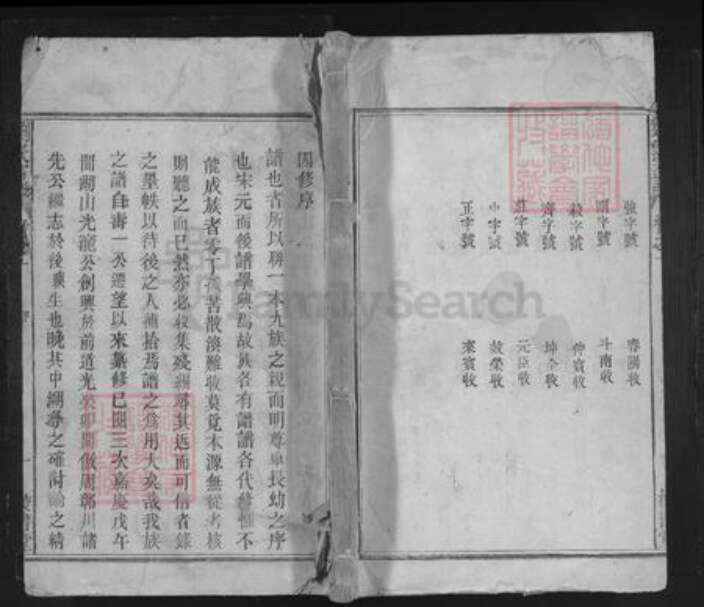 強字號 春陽收
剛字號 斗南收
毅字號 仲寅收
齊字號 坤全收
莊字號 元臣收
中字號 效榮收
正字號 來賓收
四修序
譜也者所以聯一本九族之親而明尊卑長幼之序
也宋元而後譜學興焉故族各有譜譜各代修惟不
能成族者零丁孤苦散渙難收莫覓本源無從考核
則聽之而已然亦必收集殘編尋其近而可信者錄
之墨帙以待後之人補拾焉譜之為用大矣哉我族
之譜自壽一公遷望以來纂修已閱三次嘉慶戊午
間湖山光龍公創興於前道光癸卯間儆周鄣川諸
先公繼志於後 生也晚其中網尋之確討論之精
FamilySearch